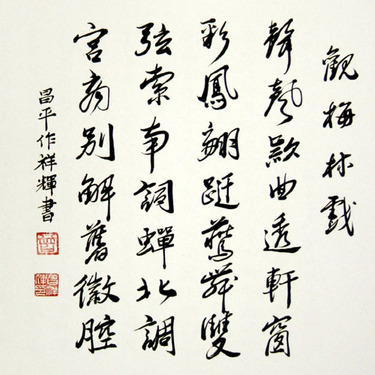 觀梅林戲
聲款曲透軒窗
彩鳳翩跹驚舞雙
弦索南詞蟬北調
宮商別解舊徽腔
昌平作祥輝書